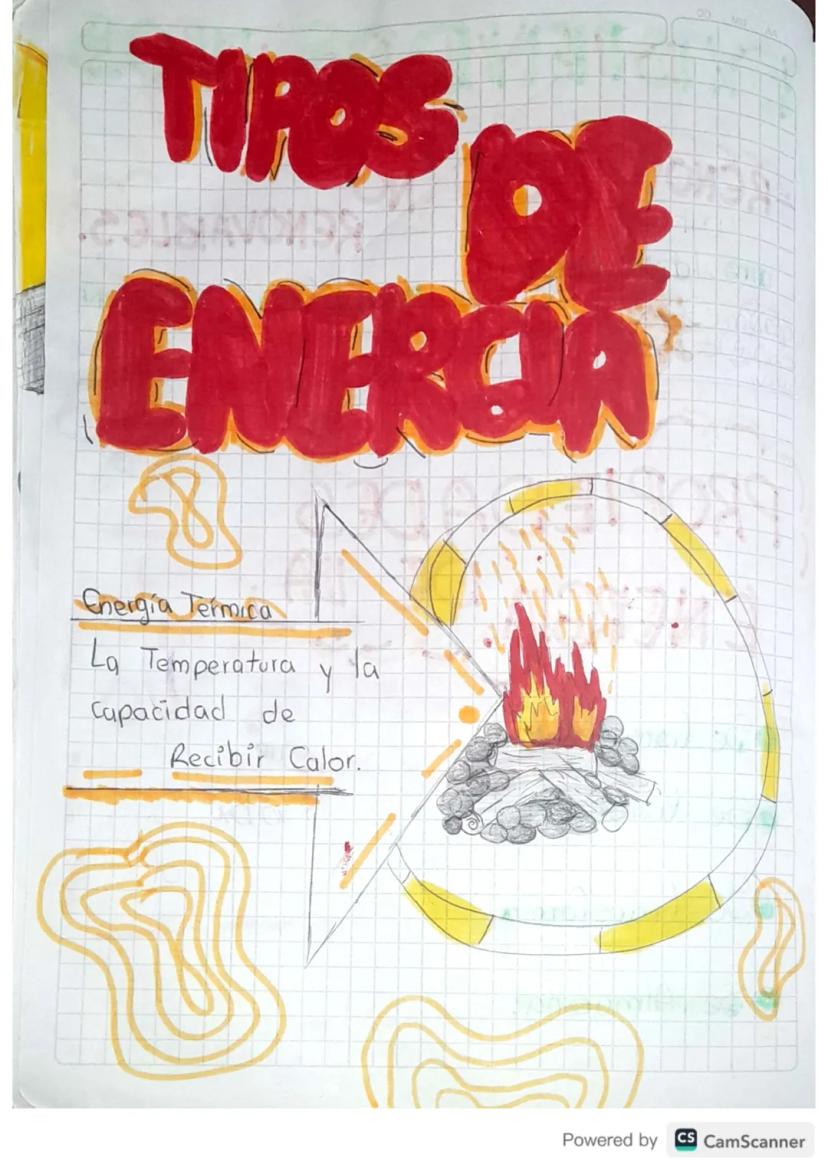 TIPOS
DE
ENERGIA
Energía Térmica
La Temperatura y la
capacidad de
Recibir Calor.
Powered by CS CamScanner